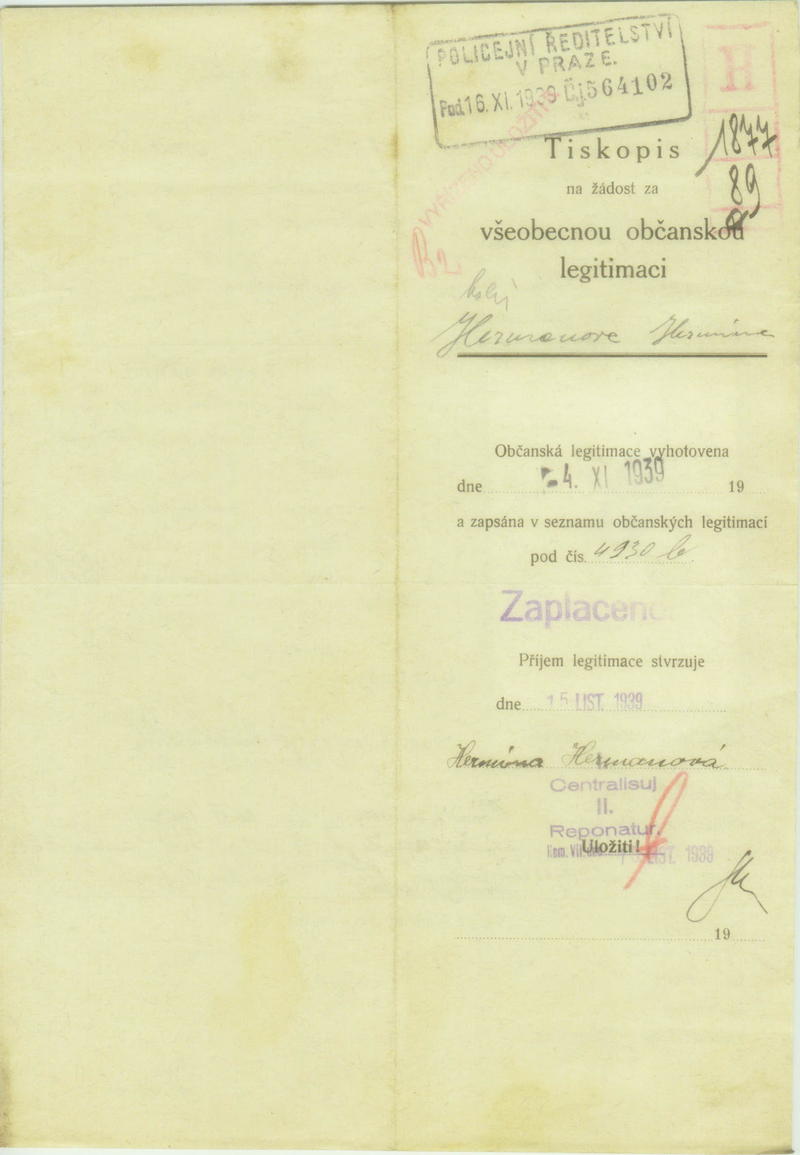 POLICEJNÍ ŘEDITELSTVÍ
V PRAZE.
Pod. 16. XI. 1939 Čj 564102
H
1877
89
Tiskopis
na žádost za
všeobecnou občanskou
legitimaci
B2
Hermanova Hermina
Občanská legitimace vyhotovena
dne 4. XI 1939 19
a zapsána v seznamu občanských legitimací
pod čís. 4930 b
Zaplaceno
Příjem legitimace stvrzuje
dne 15 LIST. 1939
Hermina Hermanová
Centralisuj
II.
Reponatur.
Uložiti!
LIST. 1939
19